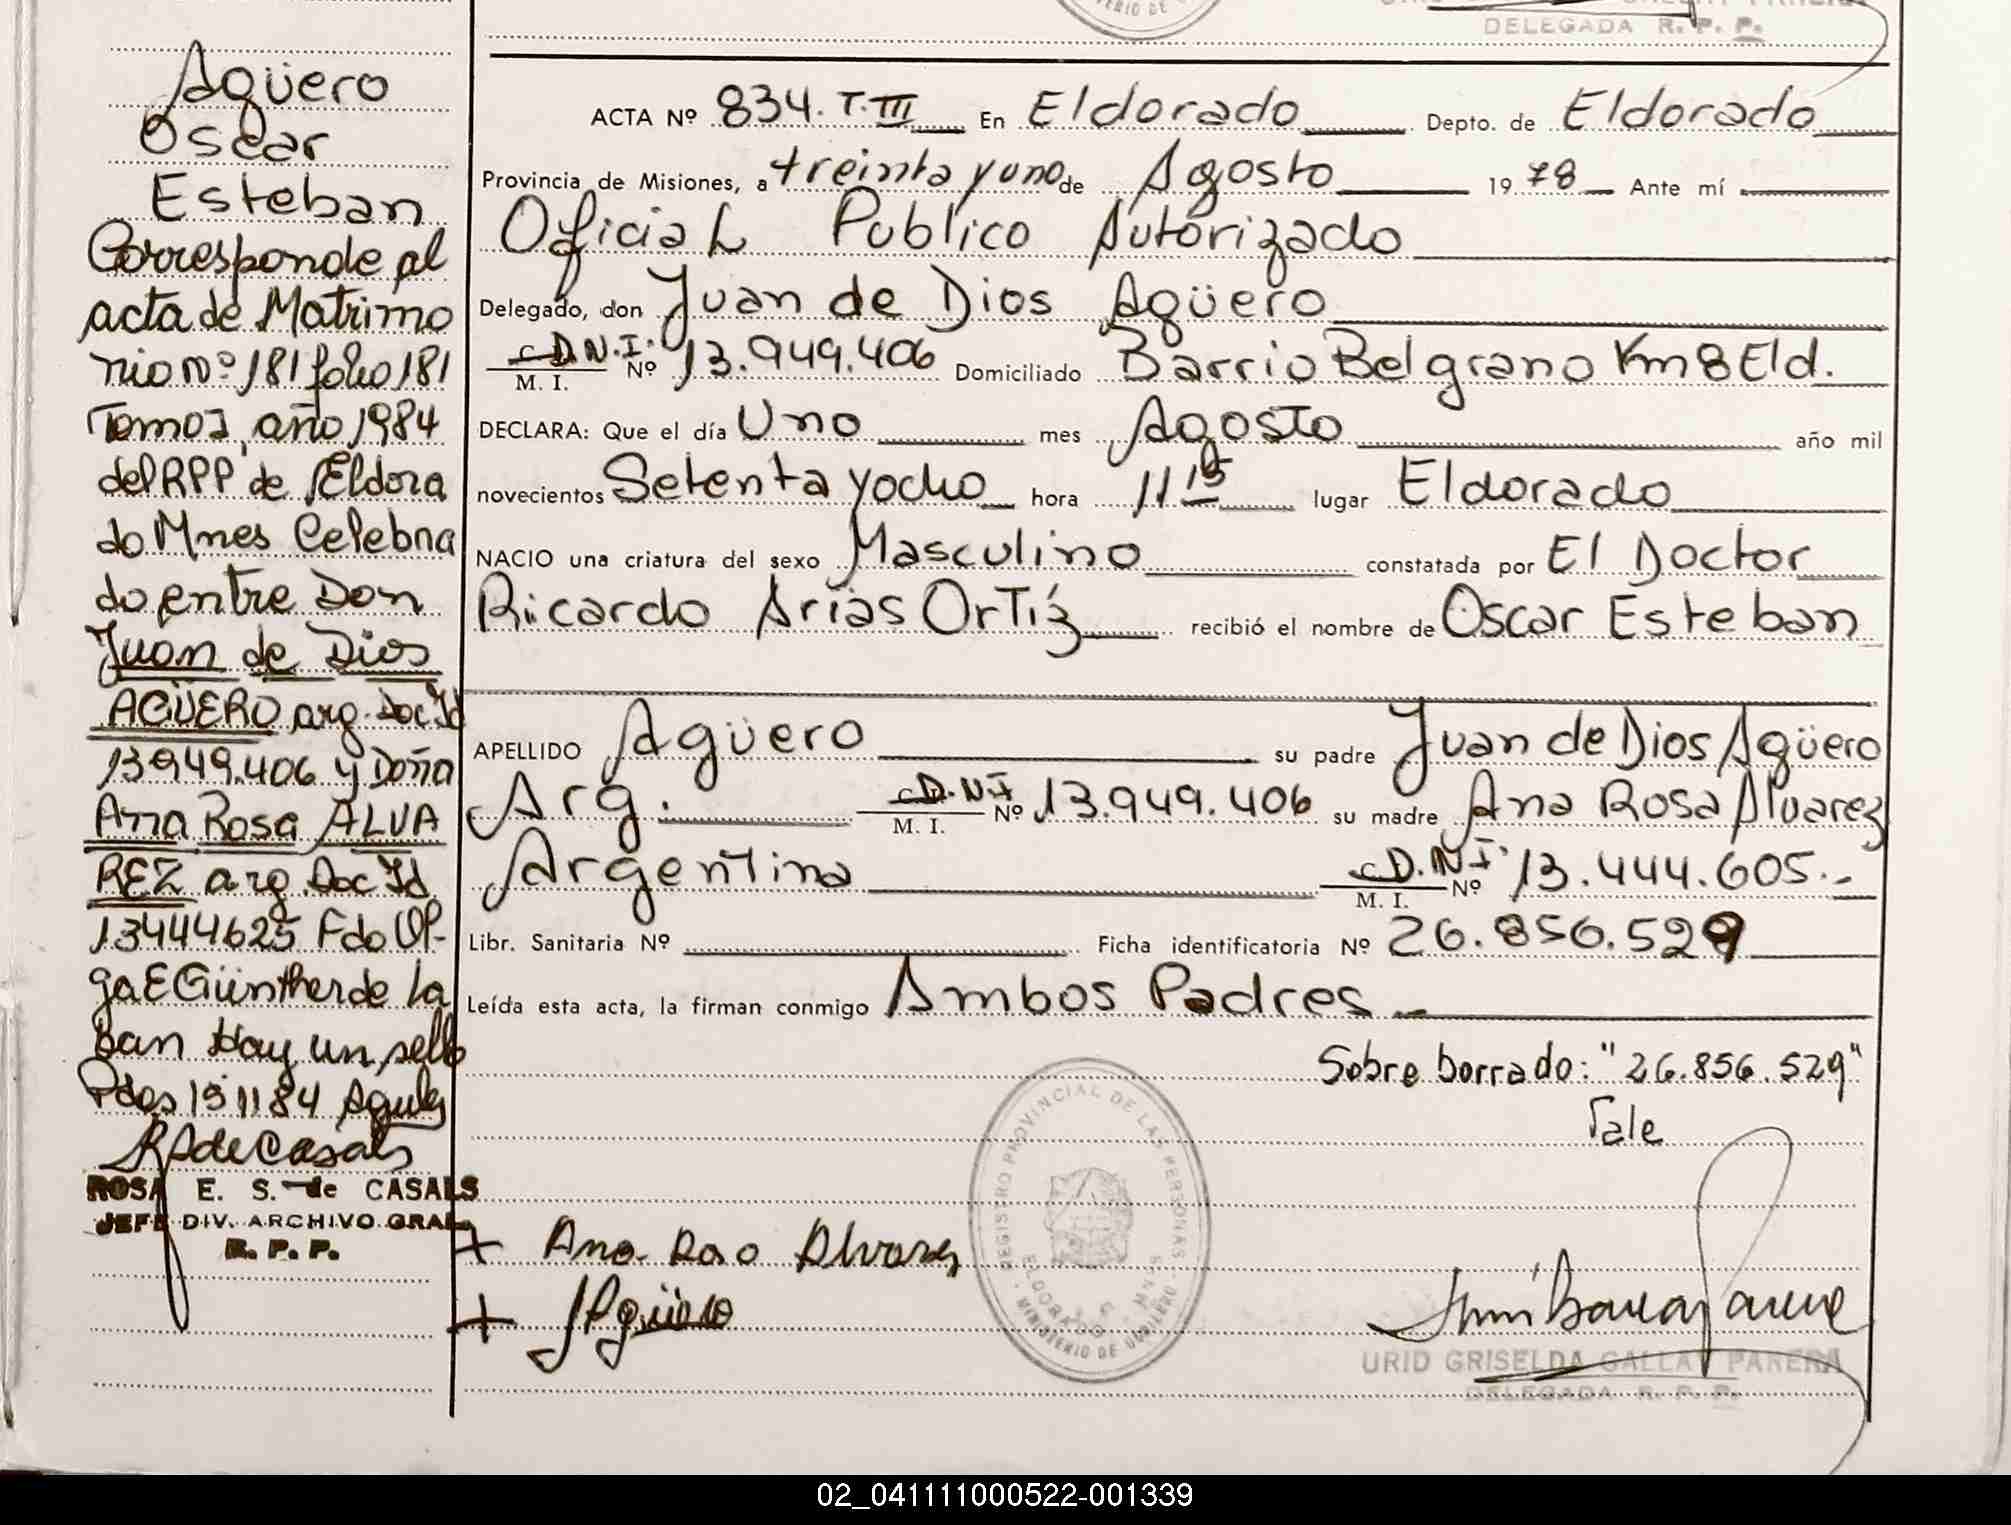 DELEGADA R. P. P.
Agüero
Oscar
Esteban
Corresponde al
acta de Matrimo
nio nº 181 folio 181
Tomo I, año 1984
del RPP de Eldora
do Mnes Celebra
do entre Don
Juan de Dios
AGÜERO arg. Doc Id
13949.406 y Doña
Ana Rosa ALVA
REZ arg. Doc Id
13444625 Fdo Ol-
ga E Günther de La
ban Hay un sello
Pdas 19 11 84
RS de Casals
ROSA E. S. de CASALS
JEFE DIV. ARCHIVO GRAL
R. P. P.
ACTA Nº 834. T. III En Eldorado Depto. de Eldorado
Provincia de Misiones, a treinta y uno de Agosto 1978 Ante mí
Oficial Publico Autorizado
Delegado, don Juan de Dios Agüero
D.N.I. M. I. Nº 13.949.406 Domiciliado Barrio Belgrano Km 8 Eld.
DECLARA: Que el día Uno mes Agosto año mil
novecientos Setenta y ocho hora 11 15 lugar Eldorado
NACIO una criatura del sexo Masculino constatada por El Doctor
Ricardo Arias Ortíz recibió el nombre de Oscar Esteban
APELLIDO Agüero su padre Juan de Dios Agüero
Arg. D.N.I M. I. Nº 13.949.406 su madre Ana Rosa Alvarez
Argentina D.N.I. M. I. Nº 13.444.605.-
Libr. Sanitaria Nº Ficha identificatoria Nº 26.856.529
Leída esta acta, la firman conmigo Ambos Padres
Sobre borrado: "26.856.529"
Vale
REGISTRO PROVINCIAL DE LAS PERSONAS
ELDORADO MNES
MINISTERIO DE GOBIERNO
+ Ana Alvarez
+ JAgüero
URID GRISELDA GALLAY PANERA
DELEGADA R. P. P.
02_041111000522-001339